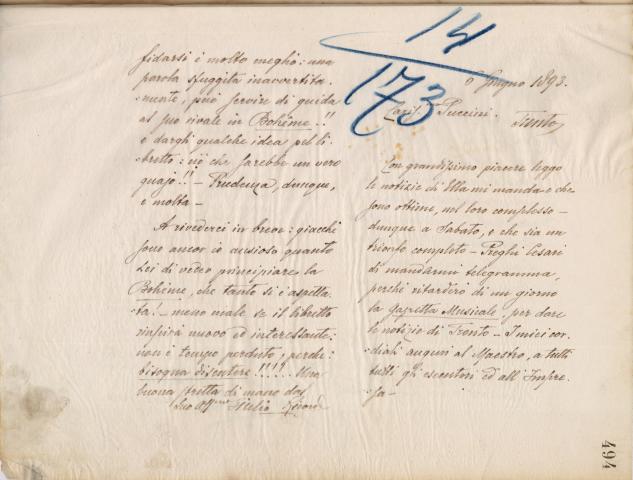 14
173
6 Giugno 1893.
Cariss. Puccini.
Trento
Con grandissimo piacere leggo
le notizie che Ella mi manda e che
sono ottime, nel loro complesso –
dunque a Sabato, e che sia un
trionfo completo – Preghi Cesari
di mandarmi telegramma,
perché ritarderò di un giorno
la Gazzetta Musicale, per dare
le notizie di Trento – I miei cor-
diali auguri al Maestro, a tutti
tutti gli esecutori ed all'Impre-
sa –
fidarsi è molto meglio: una
parola sfuggita inavvertita-
mente, può servire di guida
al suo rivale in Bohème!!
e dargli qualche idea pel li-
bretto: il che sarebbe un vero
guajo!! – Prudenza, dunque,
e molta –
A rivederci in breve: giacché
sono ancor io ansioso quanto
Lei di veder principiare la
Bohème, che tanto si è aspetta-
ta! – meno male se il libretto
riuscirà nuovo ed interessante:
non è tempo perduto, perchè:
bisogna discutere!!!! Una
buona stretta di mano dal
Suo Aff.mo Giulio Ricordi
494